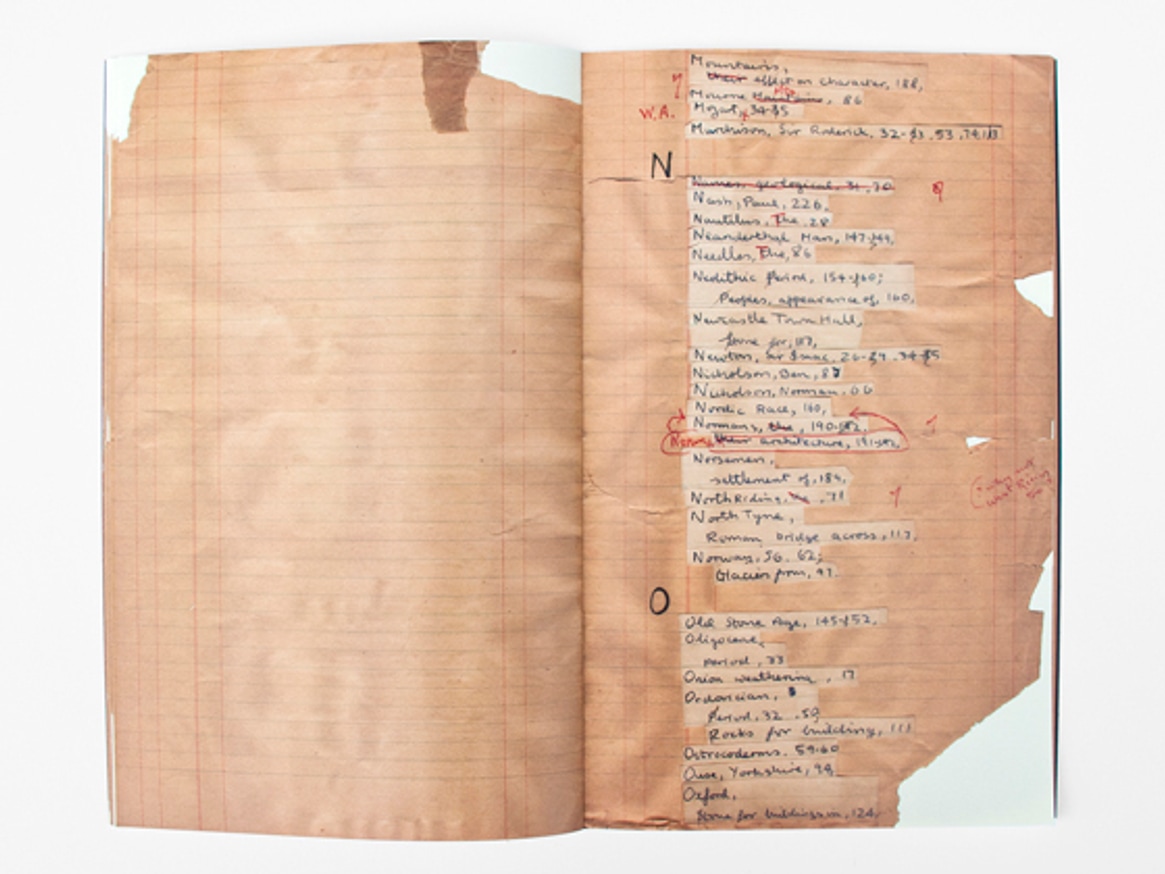 Mountains,
their effect on character, 188,
Mourne Mountains, 86
W.A.
Mozart, 34-35
Murchison, Sir Roderick, 32-33, 53
N
Names, geological, 31, 70
Nash, Paul, 226,
Nautilus, The, 28
Neanderthal Man, 147-149,
Needles, The, 86
Neolithic Period, 154-160;
Peoples, appearance of, 160,
Newcastle Town Hall,
Stone for, 117,
Newton, Sir Isaac, 26-29, 34-35
Nicholson, Ben, 87
Nicholson, Norman, 66
Nordic Race, 160,
Normans, the, 190-192,
their architecture, 191-192,
Norsemen,
settlement of, 184,
North Riding, the, 71
North Tyne,
Roman bridge across, 117,
Norway, 56, 62;
Glaciers from, 97.
O
Old Stone Age, 145-152,
Oligocene,
period, 33
Onion weathering, 17
Ordovician,
Period, 32, 59
Rocks for building, 111
Ostracoderms, 59-60
Ouse, Yorkshire, 98,
Oxford,
Stone for buildings in, 124,